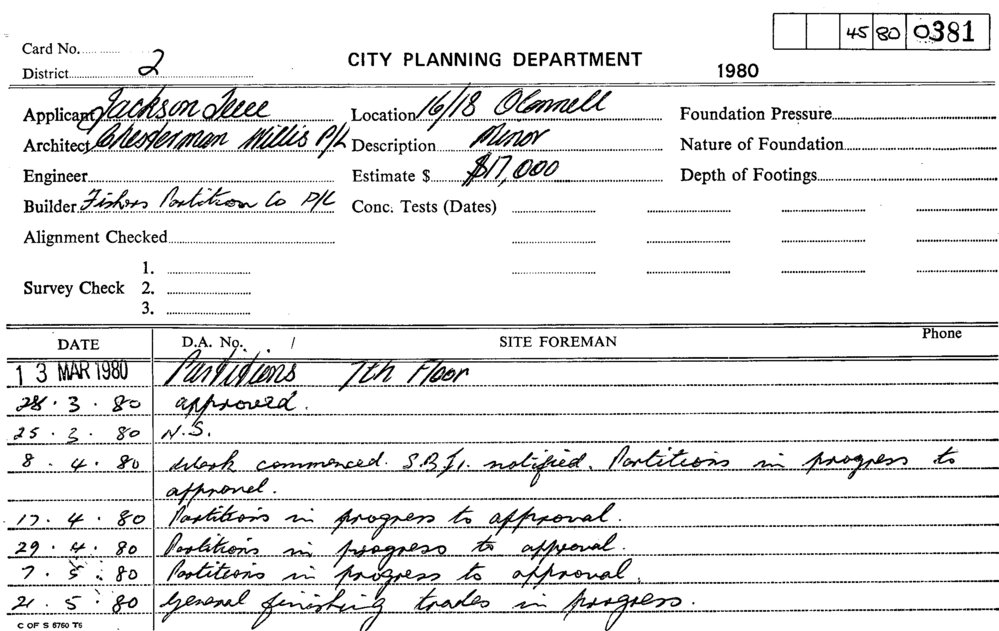 45 80 0381
Card No.
District 2
CITY PLANNING DEPARTMENT
1980
Applicant Jackson Teece
Location 16/18 O'Connell
Foundation Pressure
Architect Chesterman Willis P/L
Description Minor
Nature of Foundation
Engineer
Estimate $ $17,000
Depth of Footings
Builder Fishers Partition Co P/L
Conc. Tests (Dates)
Alignment Checked
Survey Check
1.
2.
3.
DATE D.A. No. / SITE FOREMAN Phone
13 MAR 1980 Partitions 7th Floor
3. 80 approved.
25. 3. 80 N.S.
8. 4. 80 Work commenced. notified. Partitions in progress to
approval.
17. 4. 80 Partitions in progress to approval.
29. 4. 80 Partitions in progress to approval.
7. 5. 80 Partitions in progress to approval.
21. 5. 80 General finishing trades in progress.
C OF S 6760 T6